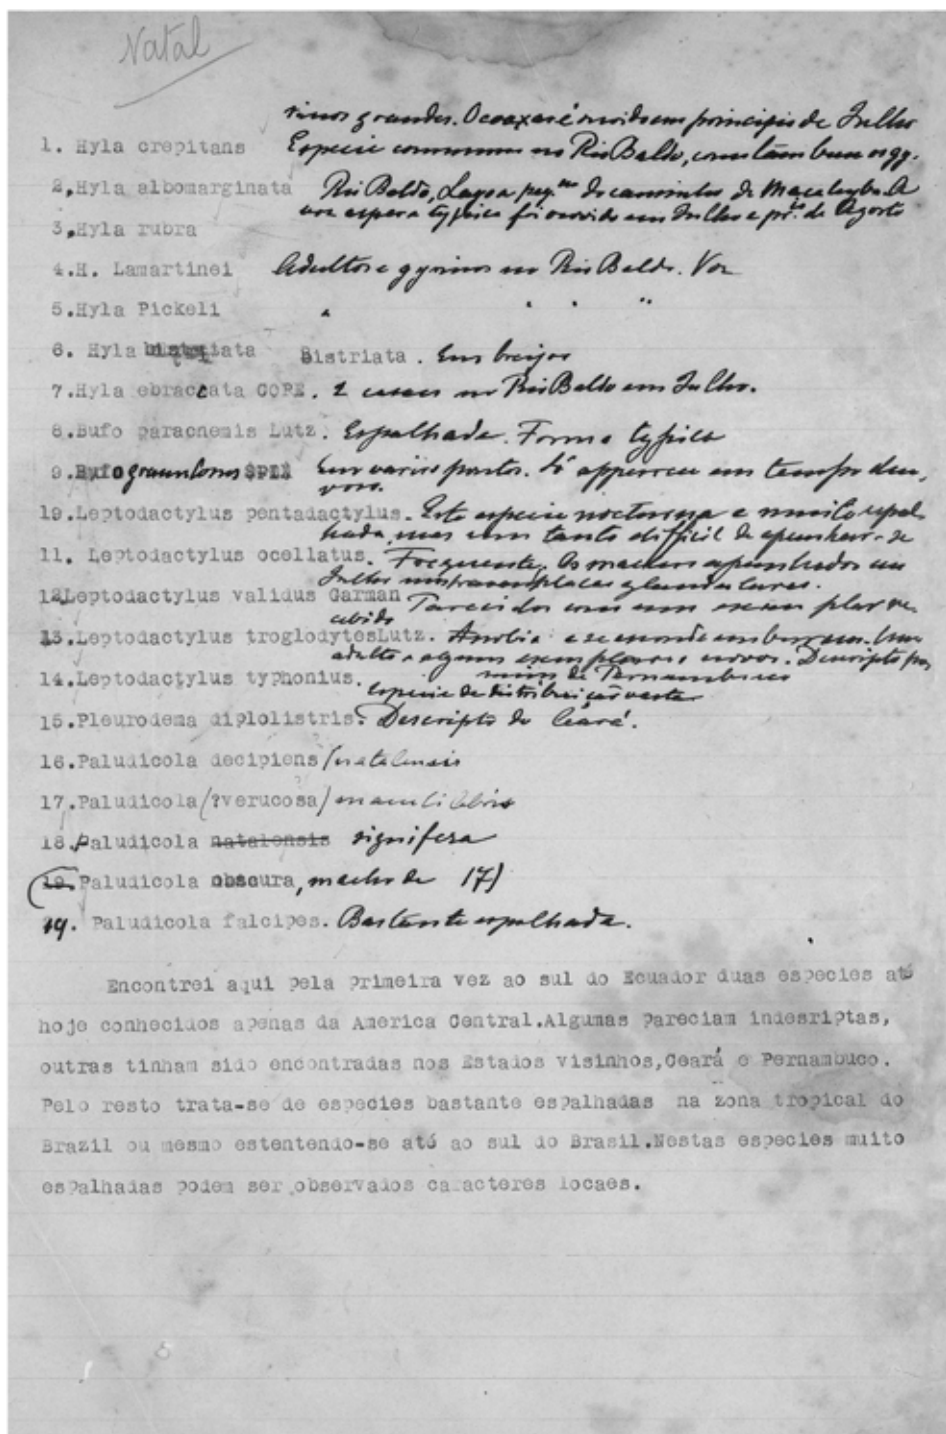 Natal
rinos grandes. O coaxar é ouvido em principio de Julho
1. Hyla crepitans Especie commum no Rio Baldo, como tambem os gy-
2. Hyla albomarginata Rio Baldo, Lagoa peq.na do caminho de A
voz aspera typica foi ouvida em Julho e pr. de Agosto
3. Hyla rubra
4. H. Lamartinei Adultos e gyrinos no Rio Baldo. Voz
5. Hyla Pickeli " " " "
6. Hyla Bistriata. Em brejos
7. Hyla ebraccata COPE. 2 no Rio Baldo em Julho.
8. Bufo paracnemis Lutz. Espalhada. Forma typica
9. Bufo granulosus SPIX Em varios pontos. Só appareceu em tempo
10. Leptodactylus pentadactylus. Esta especie nocturna e muito espal-
hada, mas um tanto difficil de apanhar-se
11. Leptodactylus ocellatus. Frequente. Os machos apanhados em
Julho mostravam placas glandulares.
12 Leptodactylus validus Garman Parecidos com um exemplar re-
cebido
13. Leptodactylus troglodytes Lutz. e se esconde em buracos. Um
adulto e alguns exemplares novos. Descripto por
mim de Pernambuco
14. Leptodactylus typhonius. Especie de distribuição vasta
15. Pleurodema diplolistris. Descripto do Ceará.
16. Paludicola decipiens / natalensis
17. Paludicola (?verucosa)
18. Paludicola natalensis signifera
(19. Paludicola obscura, macho de 17)
19. Paludicola falcipes. Bastante espalhada.
Encontrei aqui pela primeira vez ao sul do Ecuador duas especies até
hoje conhecidos apenas da America Central.Algumas pareciam indesriptas,
outras tinham sido encontradas nos Estados visinhos,Ceará e Pernambuco.
Pelo resto trata-se de especies bastante espalhadas na zona tropical do
Brazil ou mesmo estentendo-se até ao sul do Brasil.Nestas especies muito
espalhadas podem ser observados caracteres locaes.